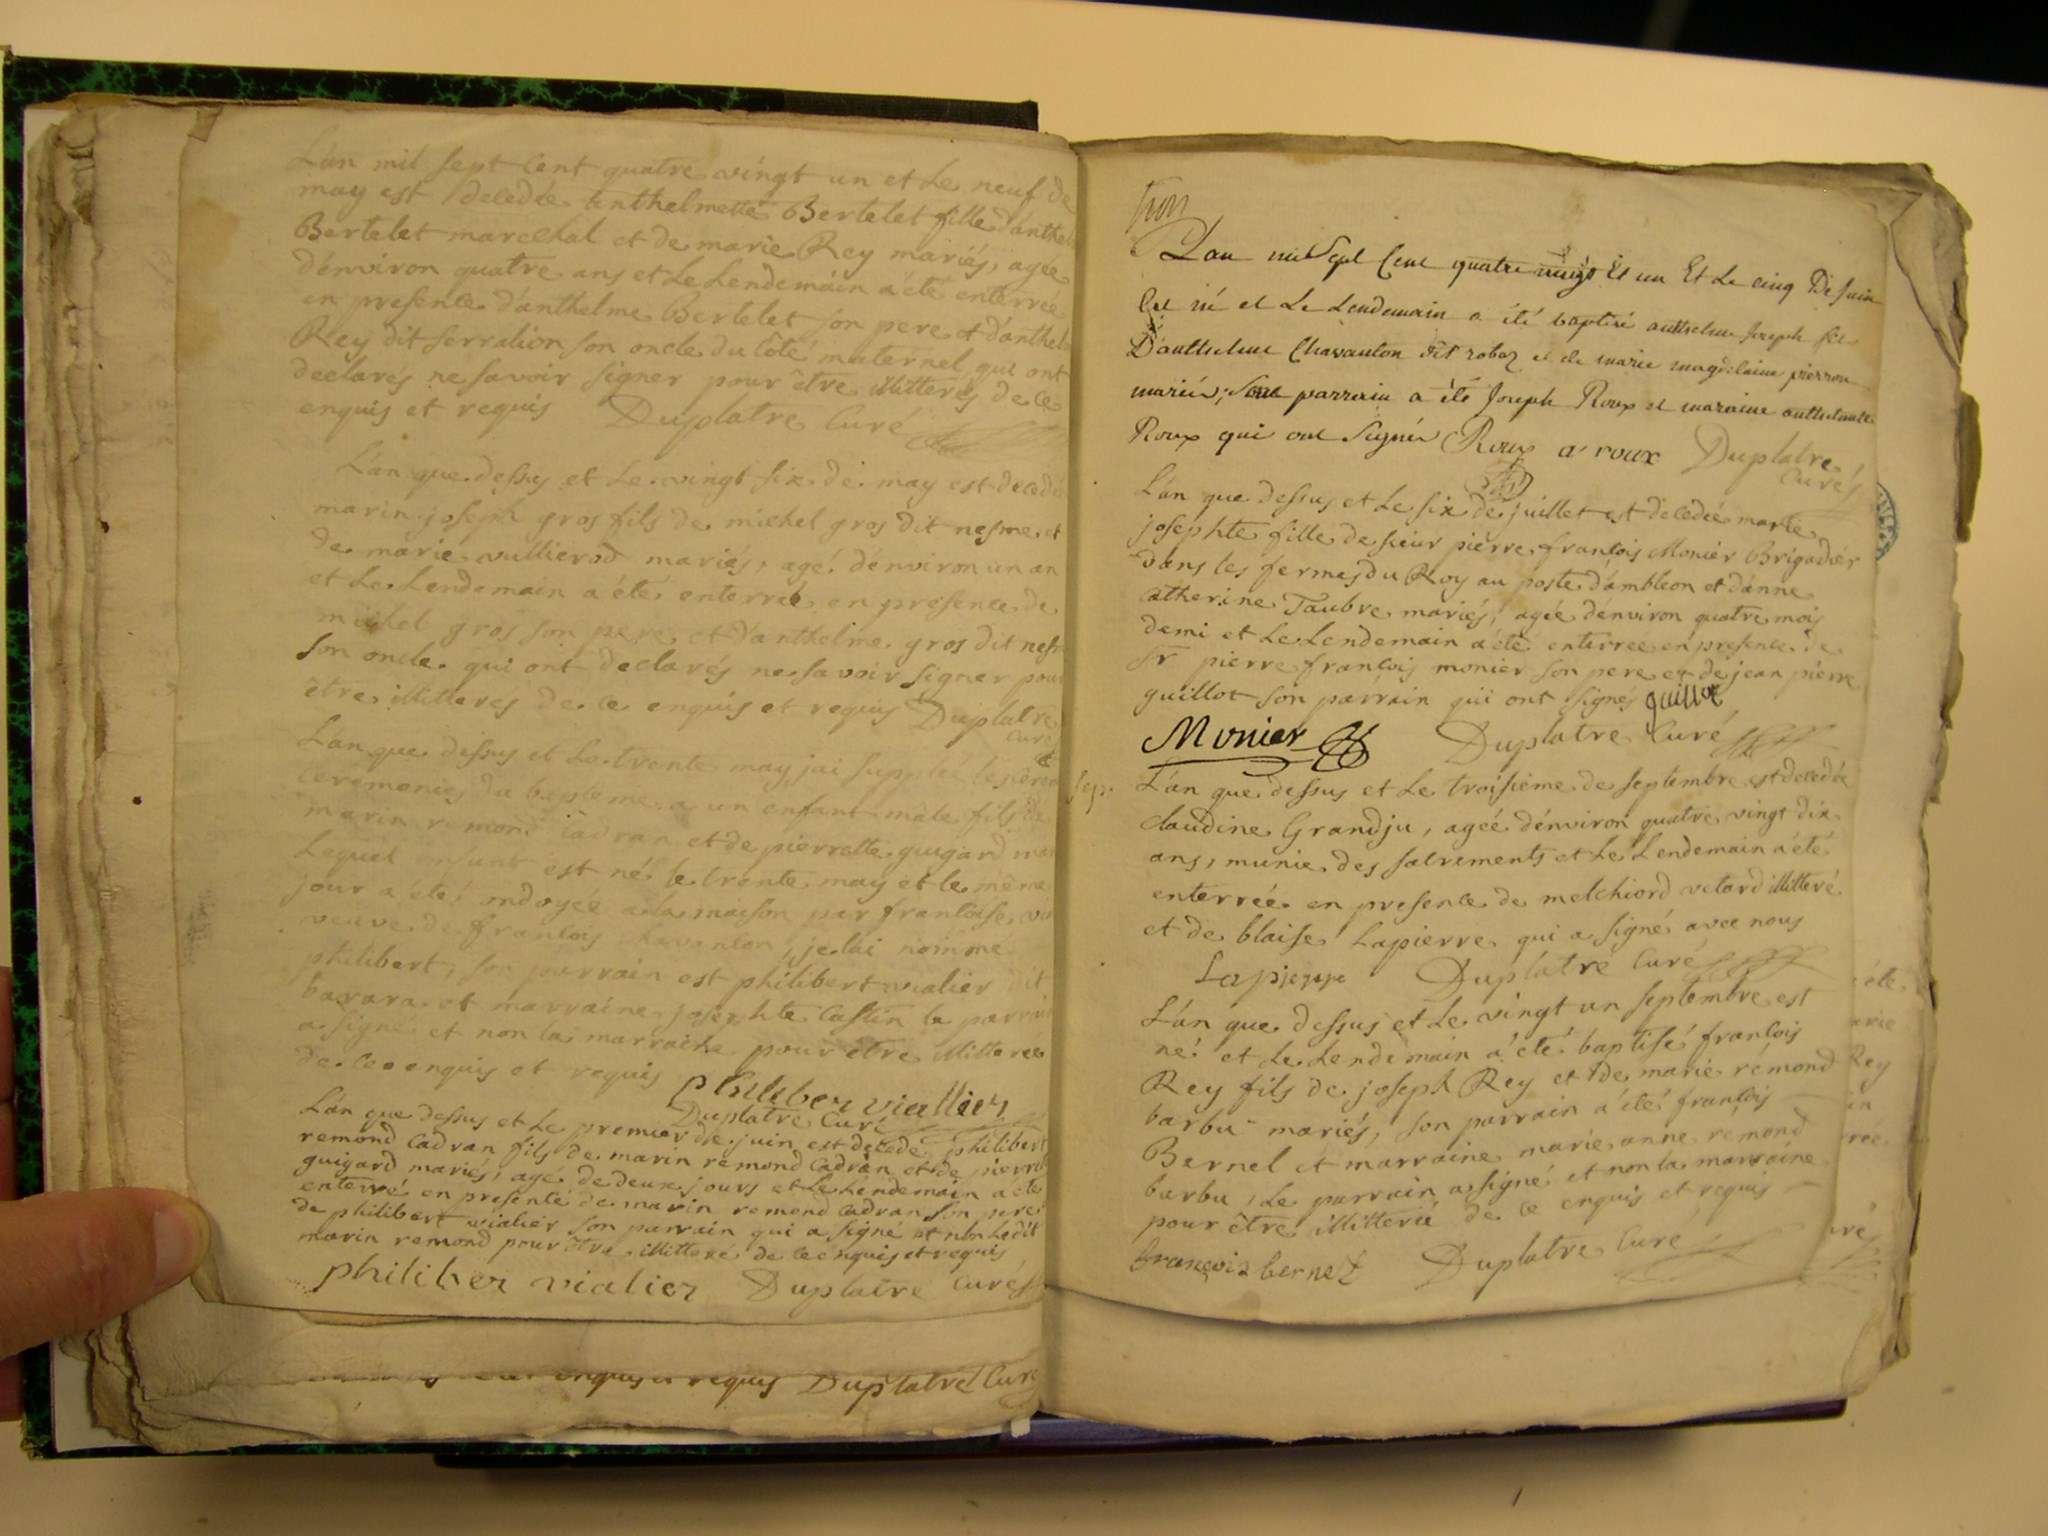 L'an mil sept cent quatre vingt un et le neuf de
may est decedée enthelmette Bertelet fille d'anthel
Bertelet marechal et de marie Rey mariés, agée
d'environ quatre ans et le lendemain a eté enterrée
en presence d'anthelme Bertelet son pere et d'anthel
Rey dit serralion son oncle du côté maternel qui ont
declarés ne savoir signer pour être illitterés de ce
enquis et requis Duplatre Curé
L'an que dessus et le vingt six de may est decedé
marin joseph gros fils de michel gros dit nesme et
de marie vullierod mariés, agé d'environ un an
et le lendemain a été enterré en presence de
michel gros son pere et d'anthelme gros dit nesm
son oncle qui ont declarés ne savoir signer pour
être illitterés de ce enquis et requis Duplatre
Curé
L'an que dessus et le trente may jai supplée les
ceremonies du bapteme a un enfant male fils de
marin remond cadran et de pierrette guigard mar
lequel enfant est né le trente may et le même
jour a été ondoyée a la maison par francoise
veuve de francois chavanton, je lai nommé
philibert, son parrain est philibert vialier dit
bavara et marraine josephte Castin le parrain
a signé et non la marraine pour être illitteree
de ce enquis et requis philiber viallier
Duplatre Curé
L'an que dessus et le premier de juin est decedé philibert
remond cadran fils de marin remond cadran et de pierret
guigard mariés, agé de deux jours et le lendemain a été
enterré en presence de marin remond cadran son pere
de philibert vialier son parrain qui a signé et non ledit
marin remond pour être illitteré de ce enquis et requis
philiber vialier Duplatre Curé
enquis et requis Duplatre Curé
L'an mil sept Cent quatre vingt Et un Et Le cinq De juin
Est né et Le Lendemain a été baptisé anthelme joseph fils
D'anthelme Chavanton dit robez et de marie magdelaine pierron
mariés; Son parrain a été Joseph Roux et maraine anthelmette
Roux qui ont signés Roux a roux Duplatre
Curé
L'an que dessus et le six de juillet est decedée marie
josephte fille de sieur pierre francois Monier Brigadier
dans les fermes du Roy au poste d'ambleon et d'anne
Catherine Taubre mariés, agée d'environ quatre mois
demi et le lendemain a été enterree en presence de
sr pierre francois monier son pere et de jean pierre
guillot son parrain qui ont signés guillot
Monier Duplatre Curé
sep.
L'an que dessus et le troisieme de septembre est decedée
claudine Grandju, ageé d'environ quatre vingt dix
ans, munie des sacrements et le lendemain a été
enterrée en presence de melchiord vetard illitteré
et de blaise Lapierre qui a signé avec nous
Lapierre Duplatre Curé
L'an que dessus et le vingt un septembre est
né et le lendemain a été baptisé francois
Rey fils de joseph Rey et de marie rémond
barbu mariés, son parrain a été francois
Bernel et marraine marie anne remond
barbu, le parrain a signé et non la marraine
pour être illitterié de ce enquis et requis
francois bernet Duplatre Curé